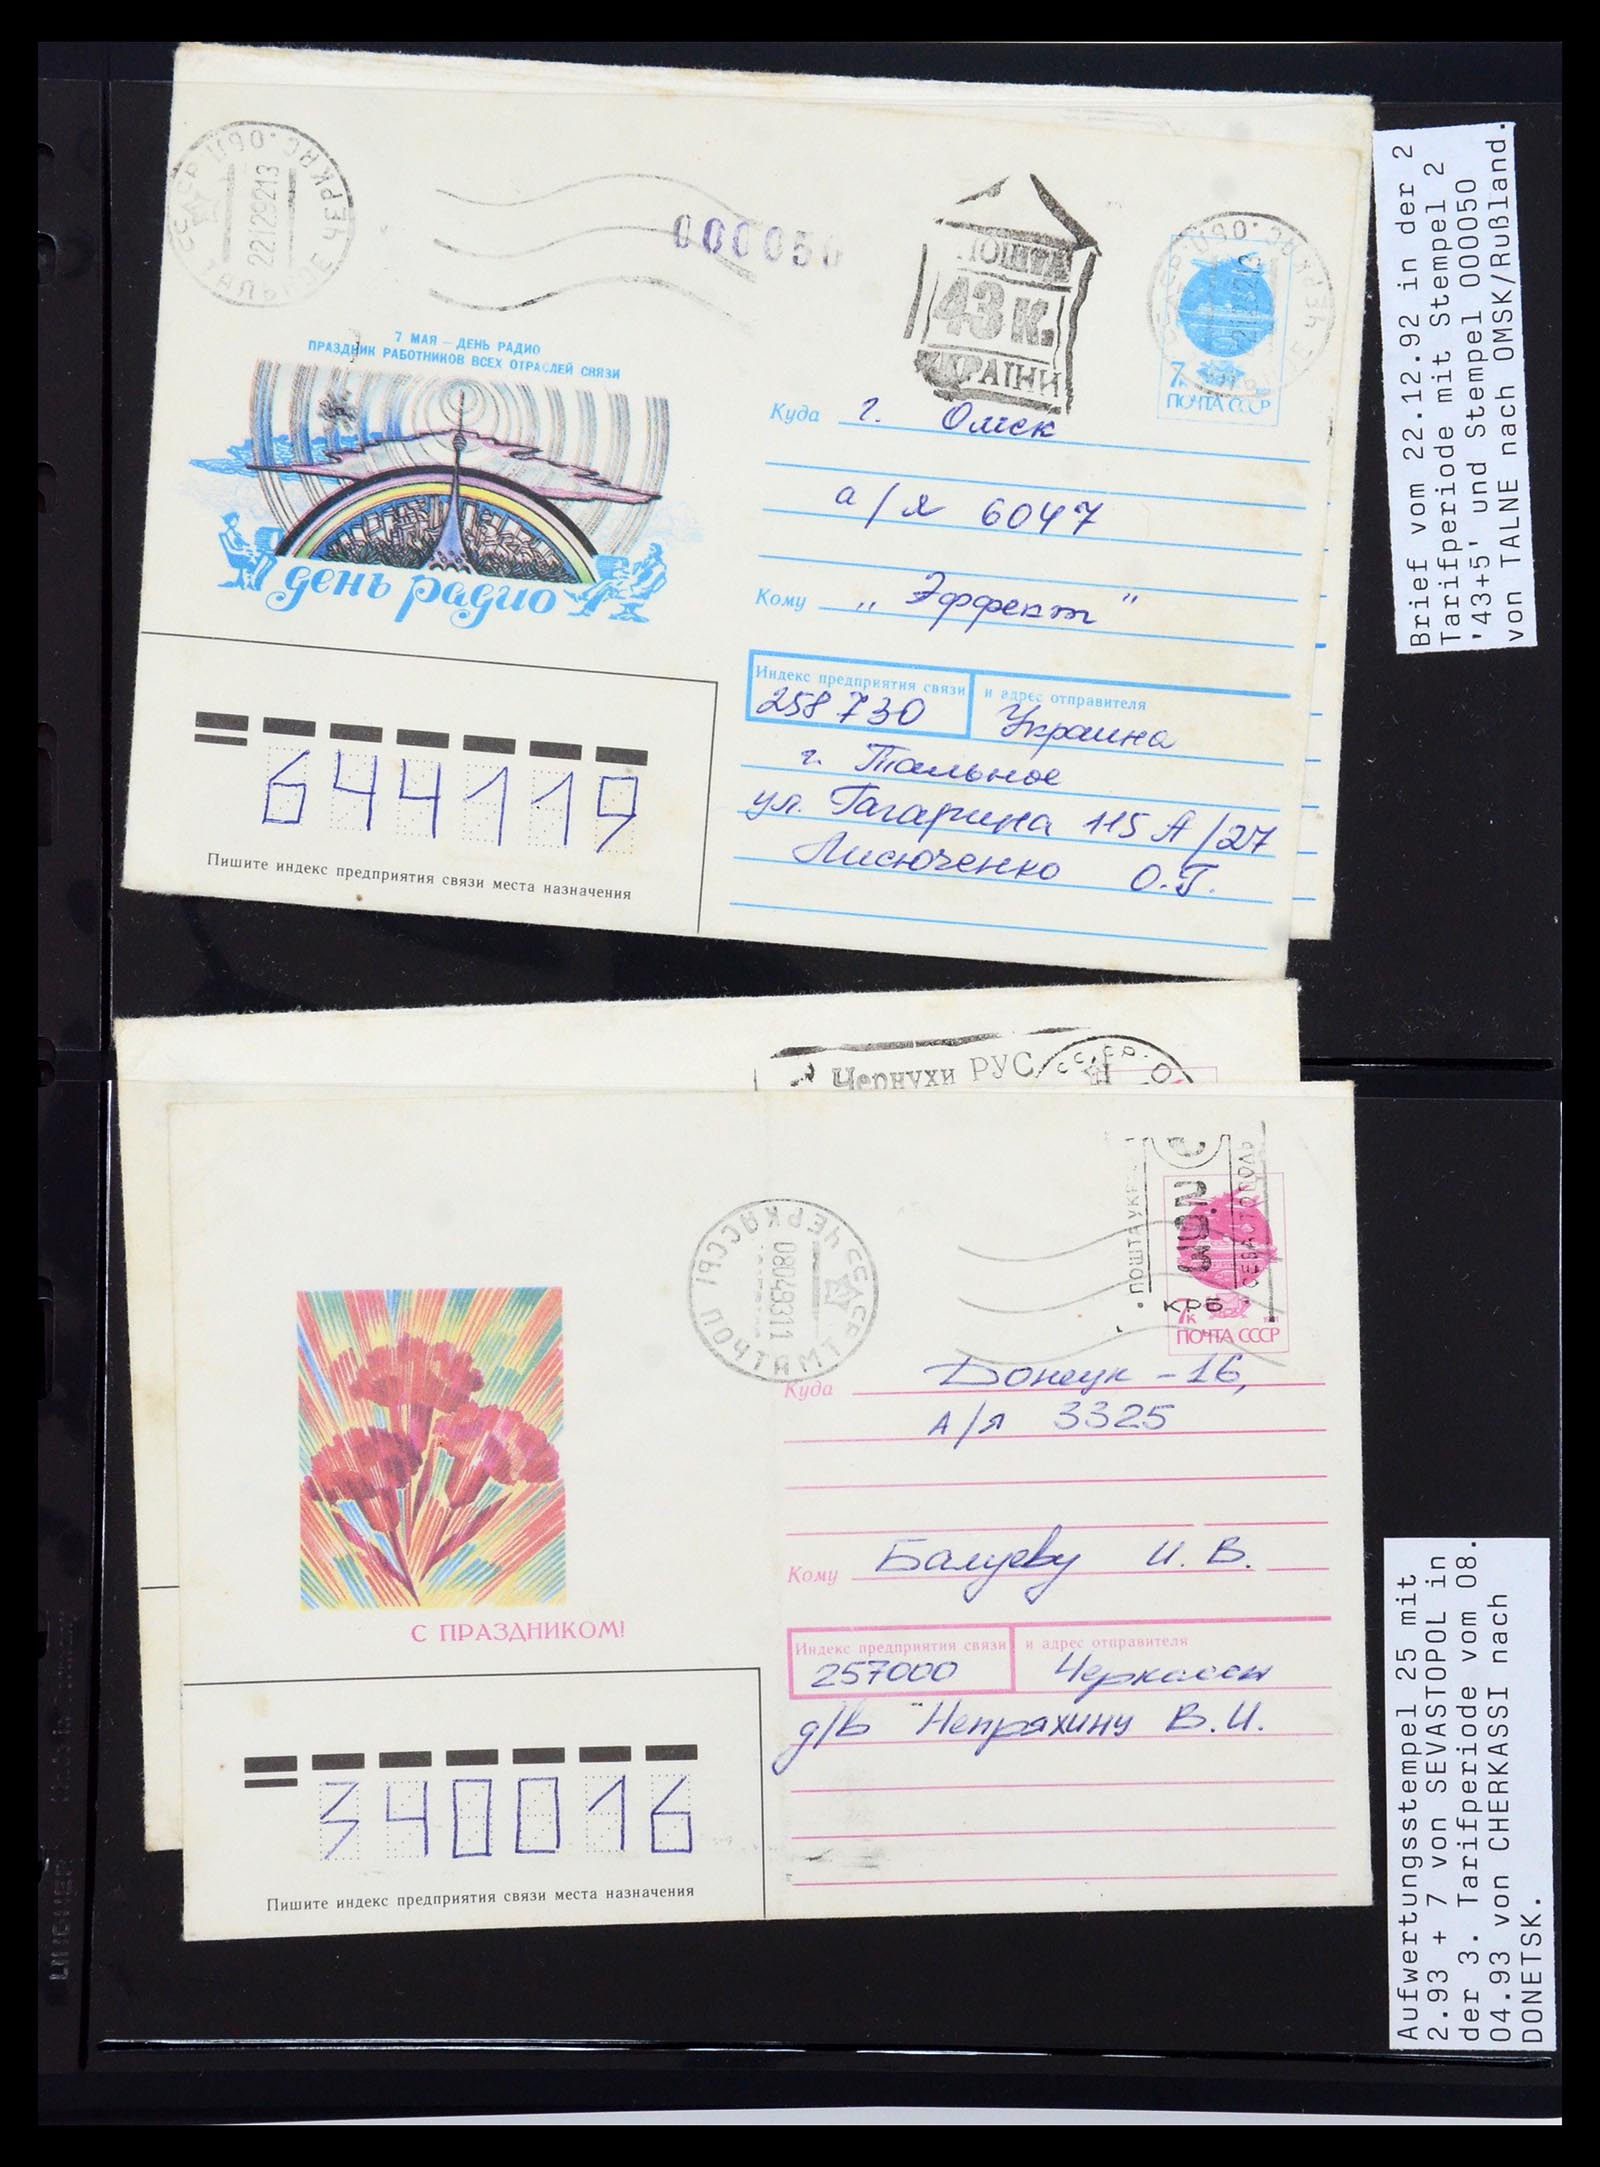 СССР ЧЕРКАС. ОБЛ.
ТАЛЬНОЕ
221292213
000050
43 К.
7к
ПОЧТА СССР
7 МАЯ — ДЕНЬ РАДИО
ПРАЗДНИК РАБОТНИКОВ ВСЕХ ОТРАСЛЕЙ СВЯЗИ
день радио
Куда г. Омск
а/я 6047
Кому „Эффект"
Индекс предприятия связи и адрес отправителя
258730 Украина
г. Тальное
ул. Гагарина 115 А/27
Лисюченко О.Г.
644119
Пишите индекс предприятия связи места назначения
Brief vom 22.12.92 in der 2
Tarifperiode mit Stempel 2
'43+5' und Stempel 000050
von TALNE nach OMSK/Rußland.
Чернухи РУС
СССР ЧЕРКАССЫ ПОЧТАМТ
08049311
СЕВАСТОПОЛЬ
крб
7к
ПОЧТА СССР
С ПРАЗДНИКОМ!
Куда Донецк -16,
А/я 3325
Кому Балуеву И. В.
Индекс предприятия связи и адрес отправителя
257000 Черкассы
д/в Непряхину В.И.
340016
Пишите индекс предприятия связи места назначения
Aufwertungsstempel 25 mit
2.93 + 7 von SEVASTOPOL in
der 3. Tarifperiode vom 08.
04.93 von CHERKASSI nach
DONETSK.